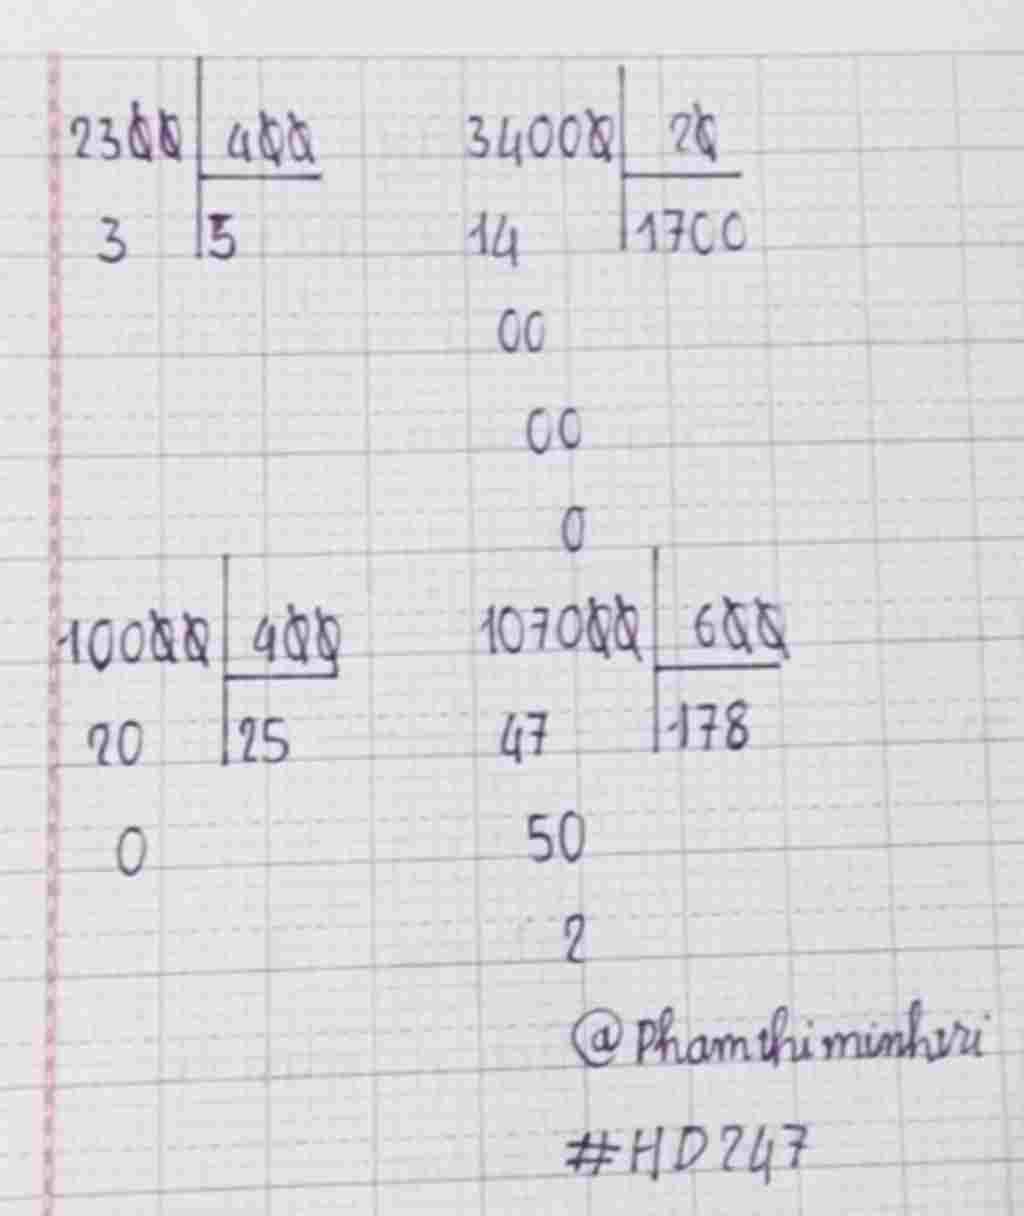 2300 400 34000 20
3 5 14 1700
00
00
0
10000 400 107000 600
20 25 47 178
0 50
2
@Phamthiminhtri
#HD247